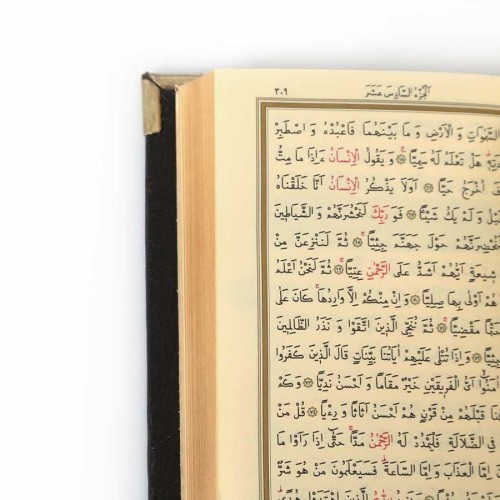 الجزء السادس عشر
٣٠٩
السموات والارض وما بينهما فاعبده واصطبر
هل تعلم له سميا ﴿٦٥﴾ ويقول الانسان ءاذا ما مت
اخرج حيا ﴿٦٦﴾ اولا يذكر الانسان انا خلقناه
قبل ولم يك شيئا ﴿٦٧﴾ فو ربك لنحشرنهم والشياطين
لنحضرنهم حول جهنم جثيا ﴿٦٨﴾ ثم لننزعن من
شيعة ايهم اشد على الرحمن عتيا ﴿٦٩﴾ ثم لنحن اعلم
هم اولى بها صليا ﴿٧٠﴾ وان منكم الا واردها كان على
حتما مقضيا ﴿٧١﴾ ثم ننجي الذين اتقوا ونذر الظالمين
جثيا ﴿٧٢﴾ واذا تتلى عليهم اياتنا بينات قال الذين كفروا
امنوا اي الفريقين خير مقاما واحسن نديا ﴿٧٣﴾ وكم
قبلهم من قرن هم احسن اثاثا ورءيا ﴿٧٤﴾ قل من
في الضلالة فليمدد له الرحمن مدا حتى اذا راوا ما
اما العذاب واما الساعة فسيعلمون من هو شر